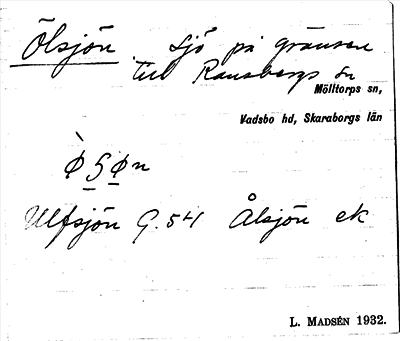 Ölsjön sjö på gränsen
till Ransbergs sn
Mölltorps sn,
Vadsbo hd, Skaraborgs län
Ulfsjön G. 54 Ålsjön ek
L. MADSÉN 1932.